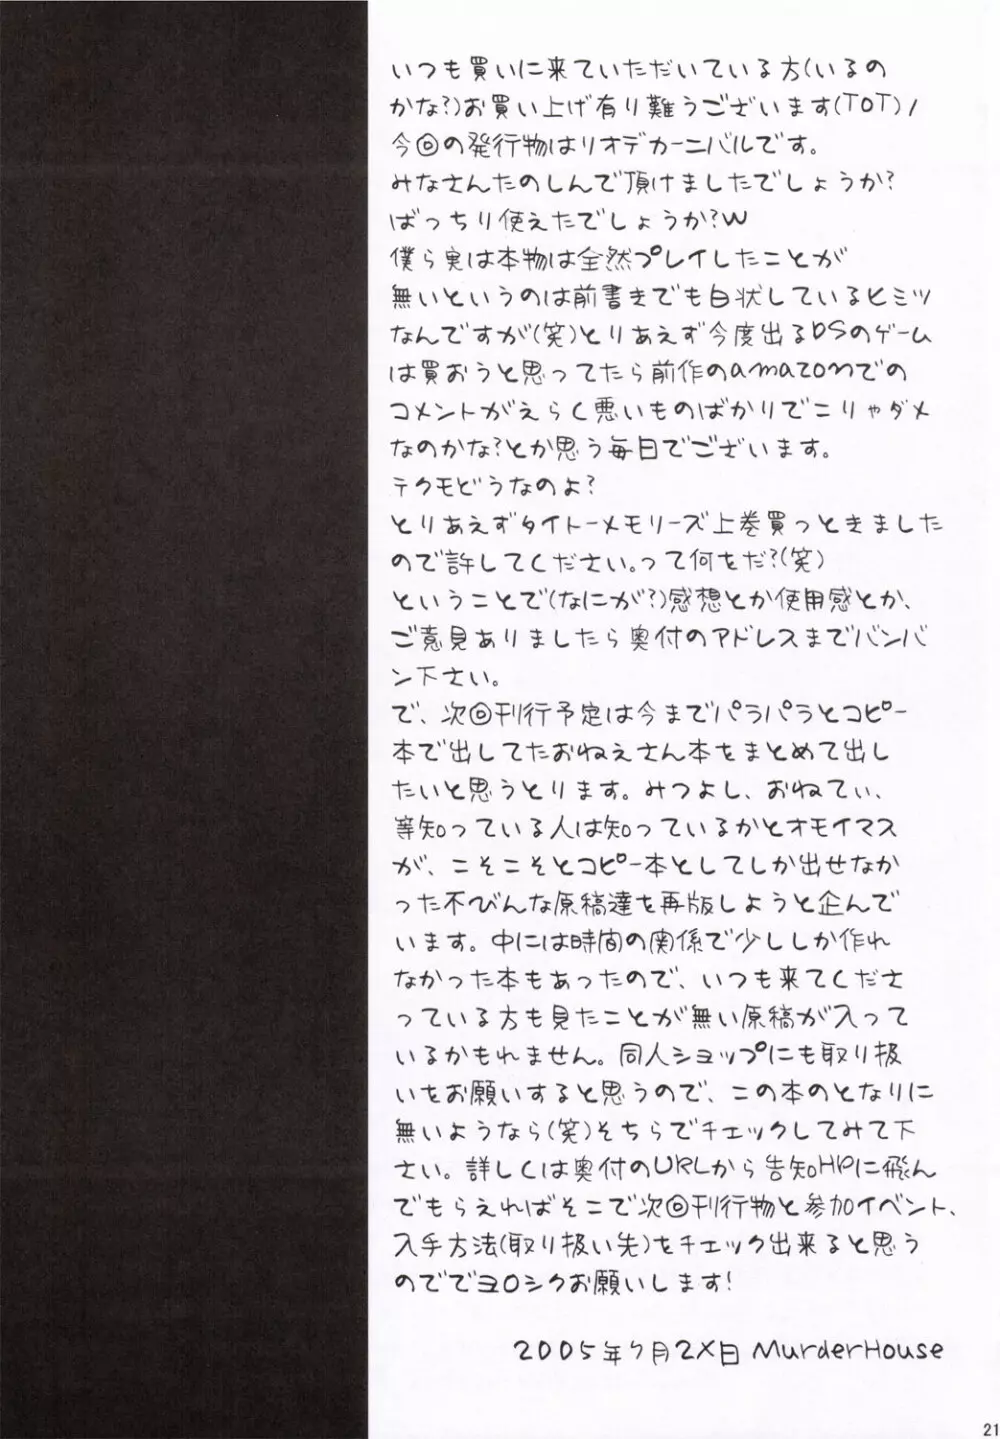 いつも買いに来ていただいている方(いるの
かな?)お買い上げ有り難うございます(TOT)/
今回の発行物はリオデカーニバルです。
みなさんたのしんで頂けましたでしょうか?
ばっちり使えたでしょうか?w
僕ら実は本物は全然プレイしたことが
無いというのは前書きでも白状しているヒミツ
なんですが(笑)とりあえず今度出るDSのゲーム
は買おうと思ってたら前作のamazonでの
コメントがえらく悪いものばかりでこりゃダメ
なのかな?とか思う毎日でございます。
テクモどうなのよ?
とりあえずタイトーメモリーズ上巻買っときました
ので許してください。って何をだ?(笑)
ということで(なにが?)感想とか使用感とか、
ご意見ありましたら奥付のアドレスまでバンバ
ン下さい。
で、次回刊行予定は今までパラパラとコピー
本で出してたおねえさん本をまとめて出し
たいと思うとります。みつよし、おねてぃ、
等知っている人は知っているかとオモイマス
が、こそこそとコピー本としてしか出せなか
った不びんな原稿達を再版しようと企んで
います。中には時間の関係で少ししか作れ
なかった本もあったので、いつも来てくださ
っている方も見たことが無い原稿が入って
いるかもれません。同人ショップにも取り扱
いをお願いすると思うので、この本のとなりに
無いようなら(笑)そちらでチェックしてみて下
さい。詳しくは奥付のURLから告知HPに飛ん
でもらえればそこで次回刊行物と参加イベント、
入手方法(取り扱い先)をチェック出来ると思う
のででヨロシクお願いします!
2005年7月2×日 MurderHouse
21